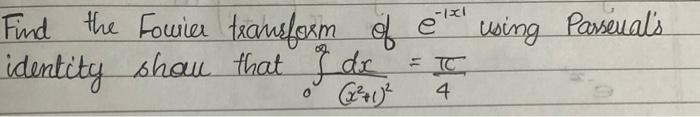 Find the Fourier transform of e^{-|x|} using Parseval's
identity show that ∫_0^∞ dx/(x²+1)² = π/4